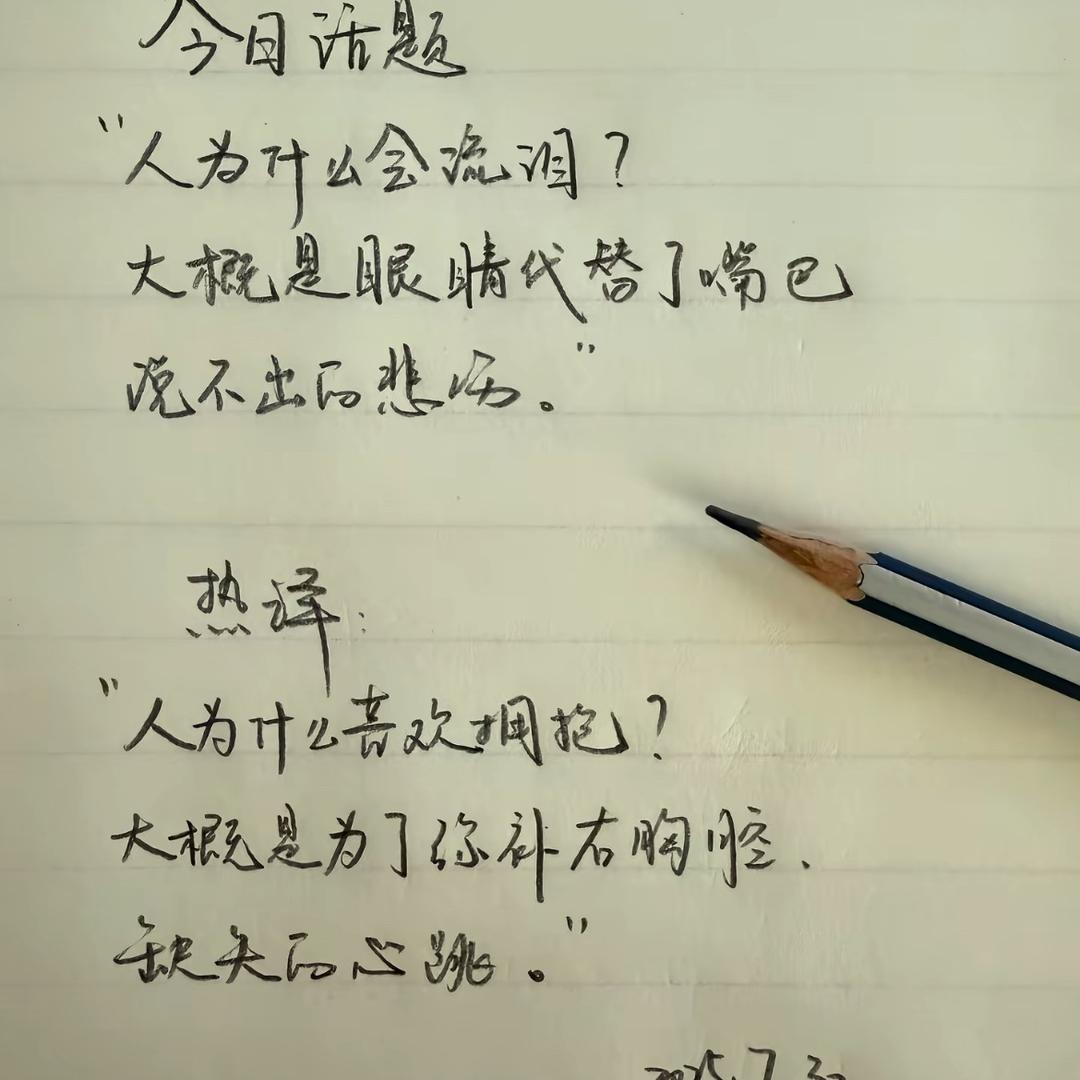 今日话题
"人为什么会流泪?
大概是眼睛代替了嘴巴
说不出的悲伤。"
热译:
"人为什么喜欢拥抱?
大概是为了弥补右胸腔.
缺失的心跳。"
2025.7.30